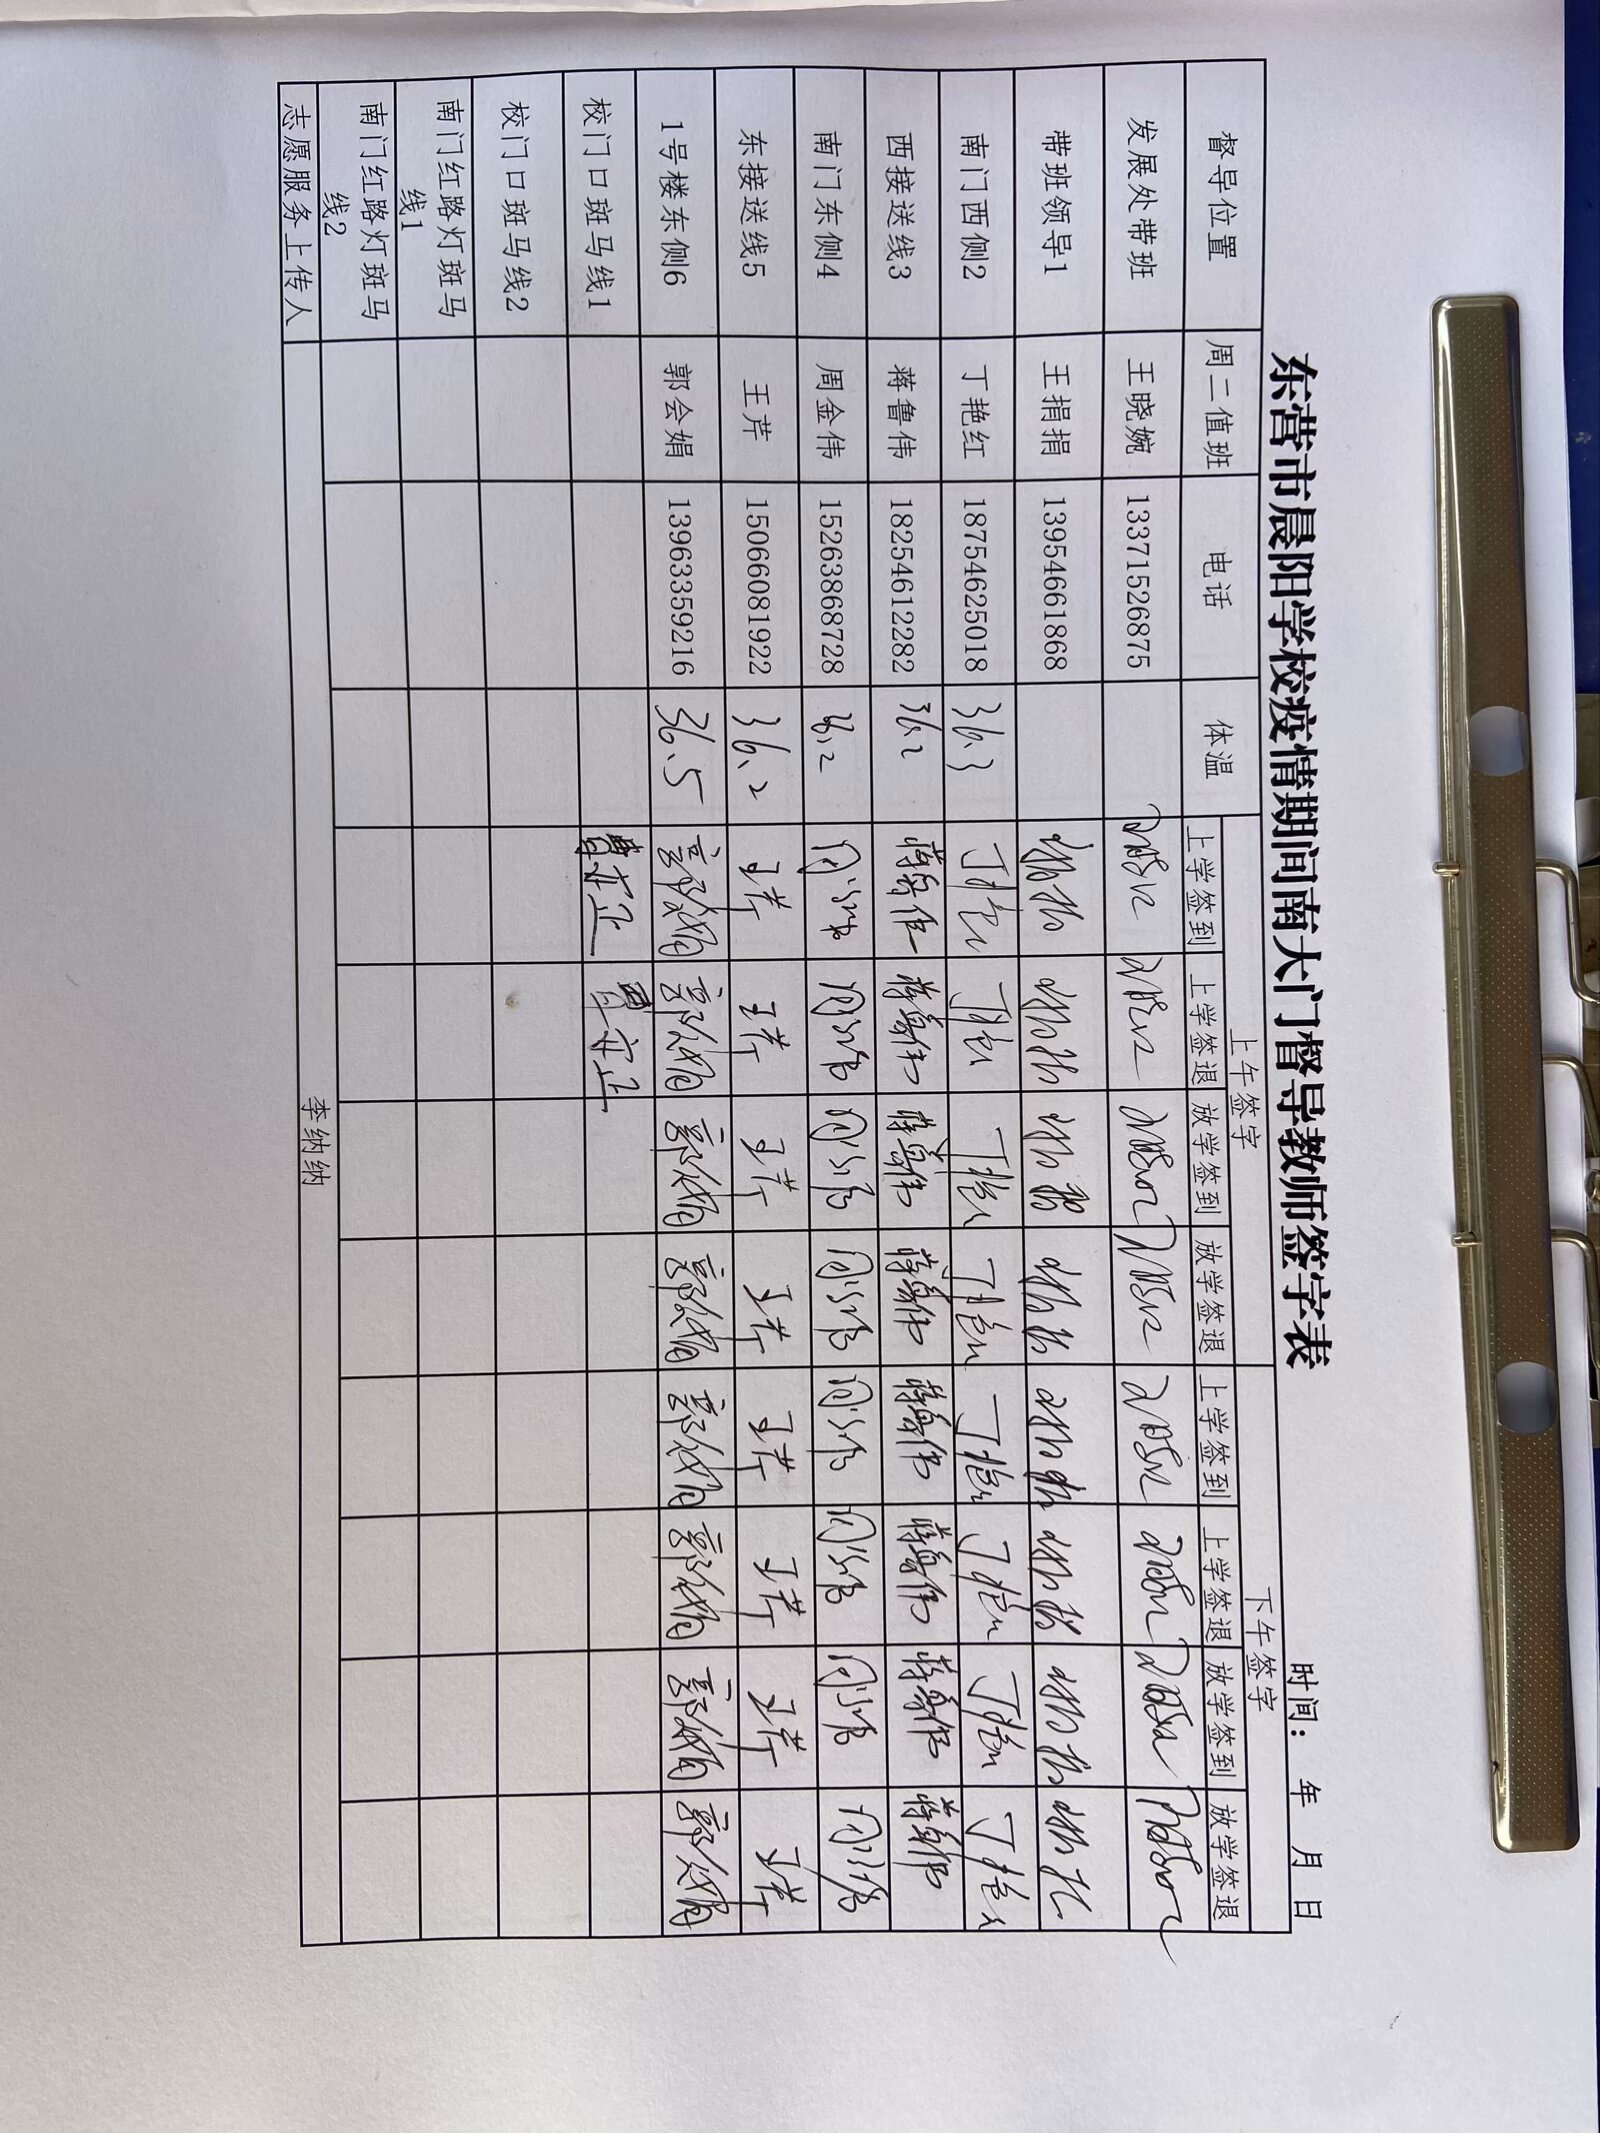 东营市晨阳学校疫情期间南大门督导教师签字表
时间： 年 月 日
督导位置 周二值班 电话 体温 上午签字 下午签字
上学签到 上学签退 放学签到 放学签退 上学签到 上学签退 放学签到 放学签退
发展处带班 王晓婉 13371526875
带班领导1 王捐捐 13954661868
南门西侧2 丁艳红 18754625018 36.3 丁艳红 丁艳红 丁艳红 丁艳红 丁艳红 丁艳红 丁艳红 丁艳红
西接送线3 蒋鲁伟 18254612282 36.2 蒋鲁伟 蒋鲁伟 蒋鲁伟 蒋鲁伟 蒋鲁伟 蒋鲁伟 蒋鲁伟 蒋鲁伟
南门东侧4 周金伟 15263868728 36.2 周金伟 周金伟 周金伟 周金伟 周金伟 周金伟 周金伟 周金伟
东接送线5 王芹 15066081922 36.2 王芹 王芹 王芹 王芹 王芹 王芹 王芹 王芹
1号楼东侧6 郭会娟 13963359216 36.5 郭会娟 郭会娟 郭会娟 郭会娟 郭会娟 郭会娟 郭会娟 郭会娟
校门口斑马线1
校门口斑马线2
南门红路灯斑马
线1
南门红路灯斑马
线2
志愿服务上传人 李纳纳